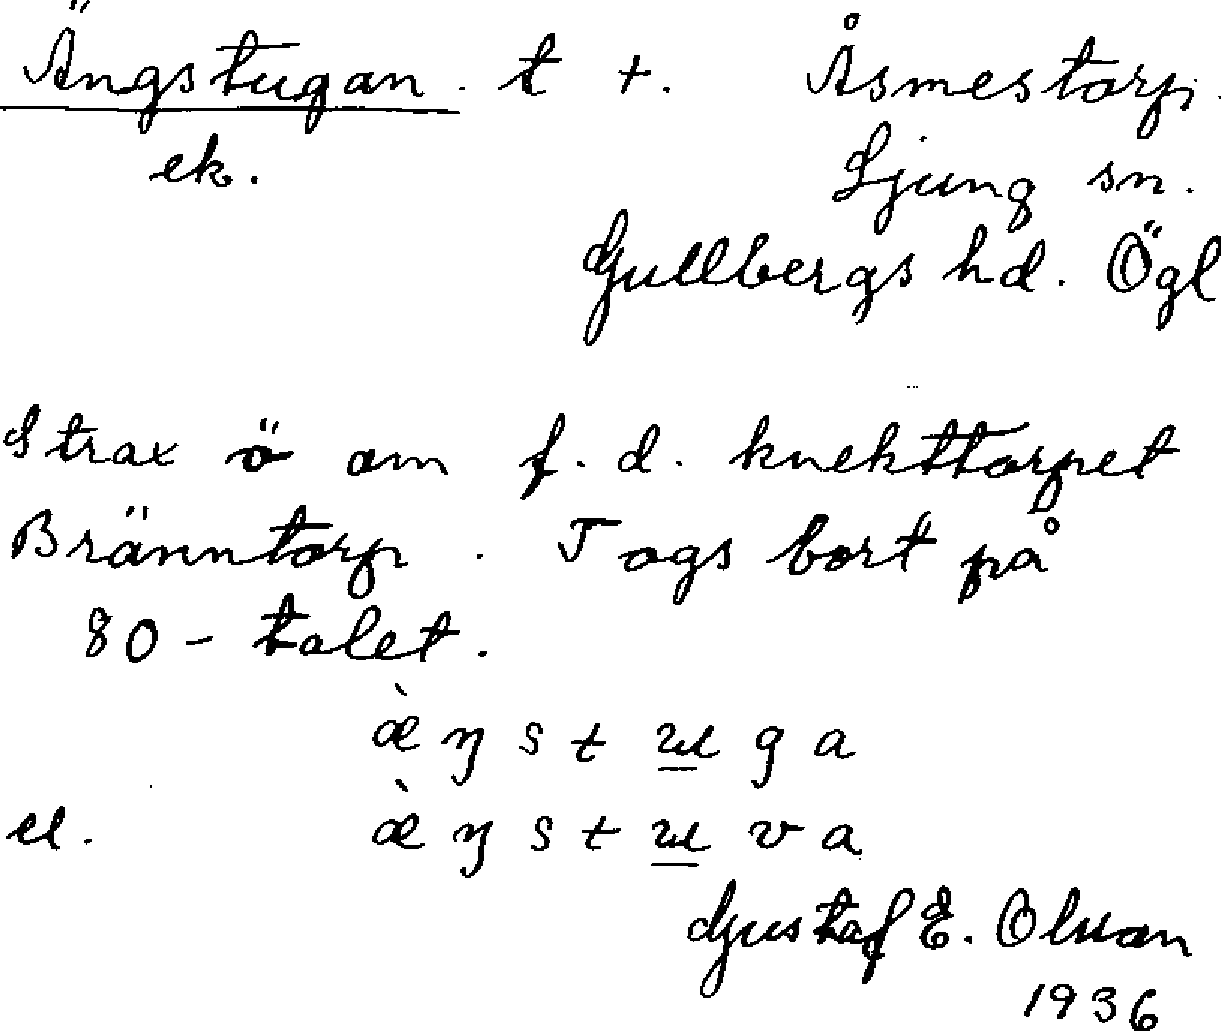 Ängstugan. t +. Åsmestorp.
ek. Ljung sn.
Gullbergs hd. Ögl
Strax ö om f. d. knekttorpet
Bränntorp. Togs bort på
80-talet.
æ̀ŋstɯga
el. æ̀ŋstɯva
Gustaf E. Olsson
1936